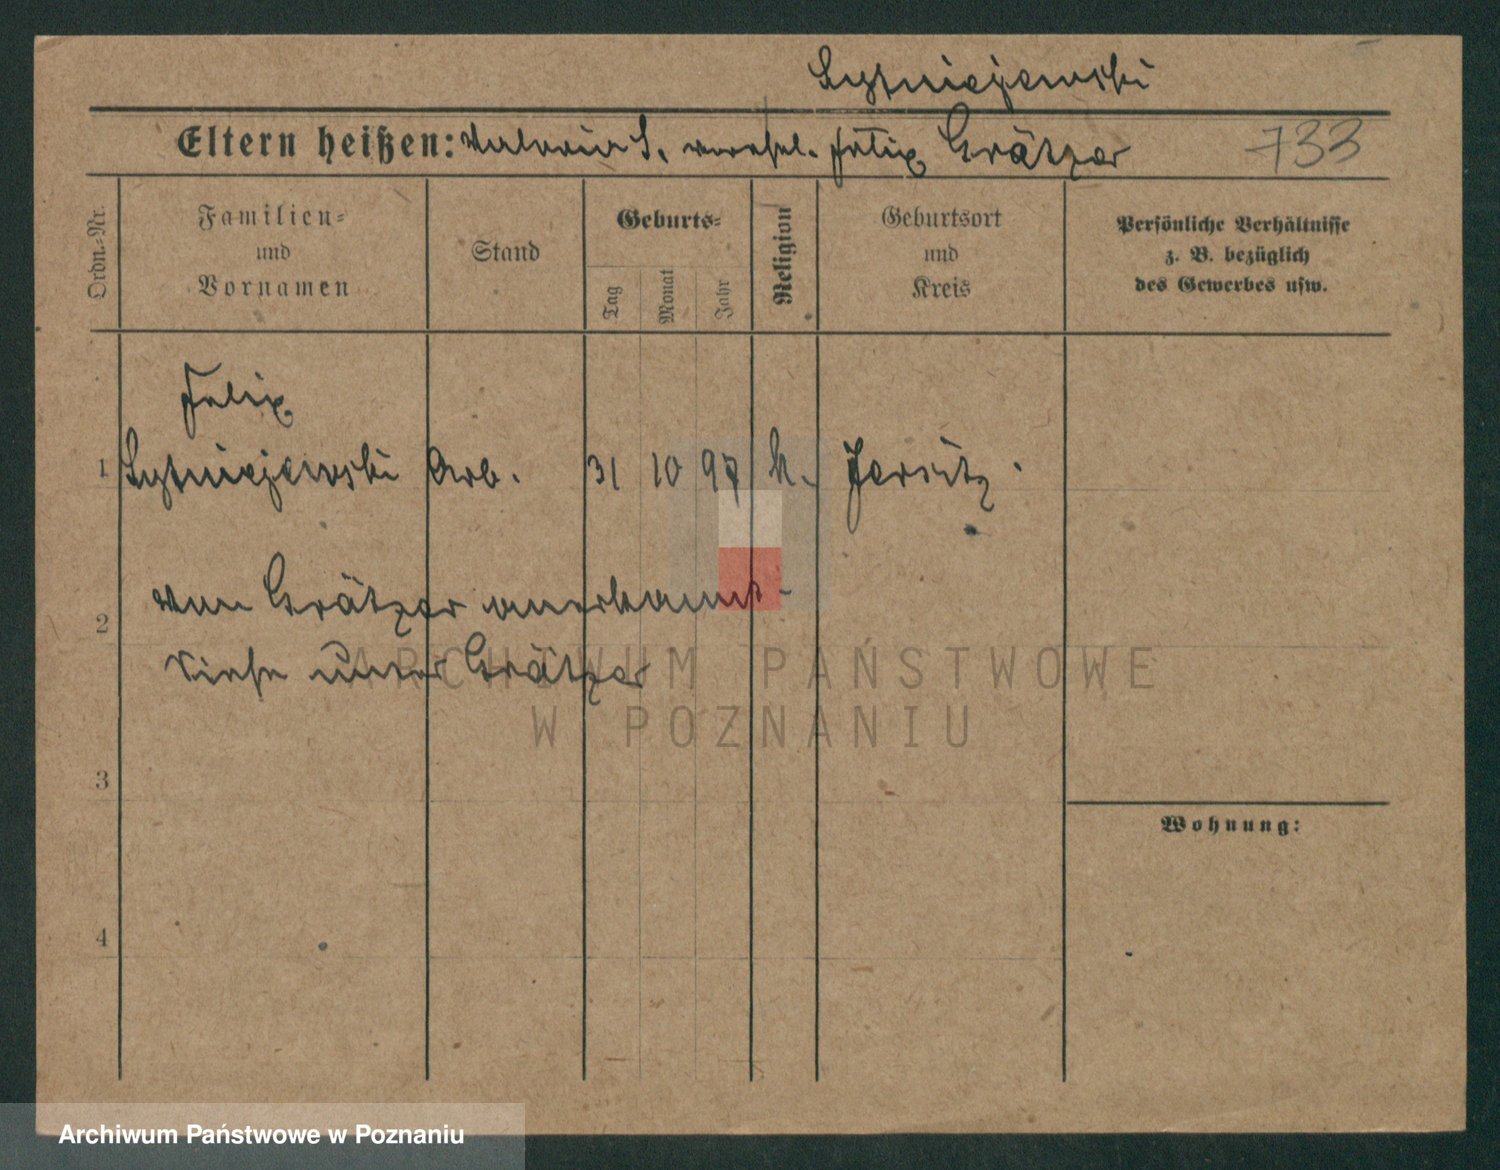 Lyskiejewski
Eltern heißen: Valerie L. verehel. Felix Grätzer 733
Ordn.-Nr.
Familien-
und
Vornamen
Stand
Geburts-
Tag
Monat
Jahr
Religion
Geburtsort
und
Kreis
Persönliche Verhältnisse
z. B. bezüglich
des Gewerbes usw.
Felix
1 Arb. 31 10 97 k. Jersitz.
von Grätzer anerkannt
2
siehe unter Grätzer
3
Wohnung:
4
ARCHIWUM PAŃSTWOWE
W POZNANIU
Archiwum Państwowe w Poznaniu